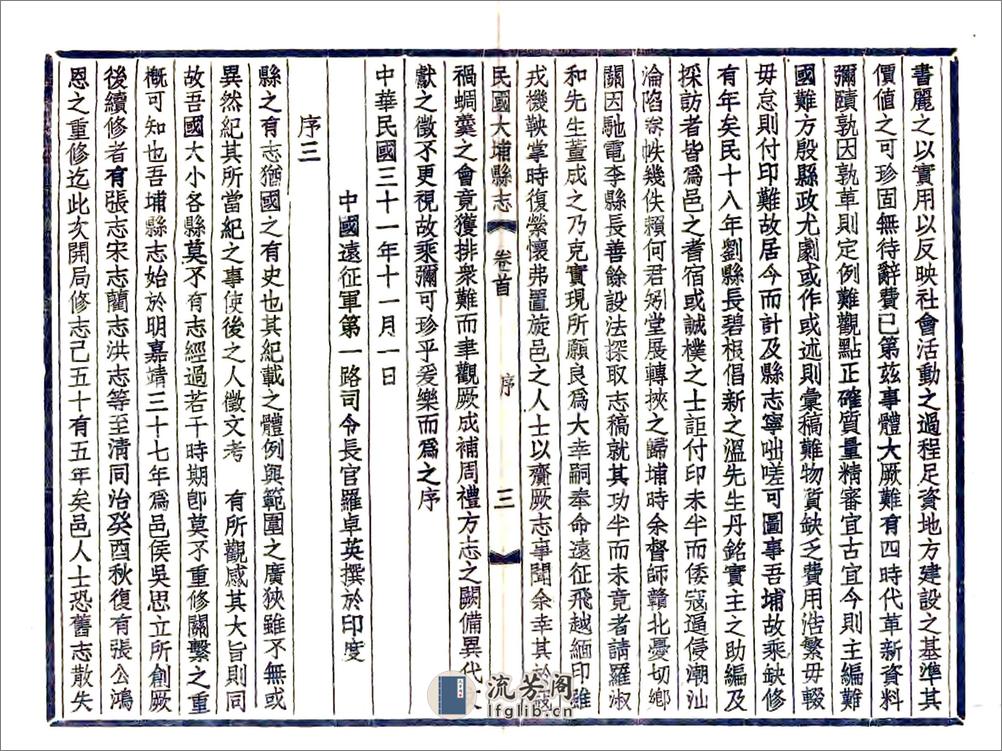 書麗之以實用以反映社會活動之過程足資地方建設之基準其
價值之可珍固無待辭費已第茲事體大厥難有四時代革新資料
彌賾孰因孰革則定例難觀點正確質量精審宜古宜今則主編難
國難方殷縣政尤劇或作或述則彙稿難物質缺乏費用浩繁毋輟
毋怠則付印難故居今而計及縣志寧咄嗟可圖事吾埔故乘缺修
有年矣民十八年劉縣長碧根倡新之溫先生丹銘實主之助編及
採訪者皆爲邑之耆宿或誠樸之士詎付印未半而倭寇逼侵潮汕
淪陷卷帙幾佚賴何君躬堂展轉挾之歸埔時余督師贛北憂切鄉
關因馳電李縣長善餘設法採取志稿就其功半而未竟者請羅淑
和先生董成之乃克實現所願良爲大幸嗣奉命遠征飛越緬印雖
戎機鞅掌時復縈懷弗置旋邑之人士以齎厥志事聞余幸其於
民國大埔縣志 卷首 序 三
禍蜩螗之會竟獲排衆難而聿觀厥成補周禮方志之闕備異代
獻之徵不更視故乘彌可珍乎爰樂而爲之序
中華民國三十一年十一月一日
中國遠征軍第一路司令長官羅卓英撰於印度
序三
縣之有志猶國之有史也其紀載之體例與範圍之廣狹雖不無或
異然紀其所當紀之事使後之人徵文考 有所觀感其大旨則同
故吾國大小各縣莫不有志經過若干時期卽莫不重修關繫之重
概可知也吾埔縣志始於明嘉靖三十七年爲邑侯吳思立所創厥
後續修者有張志宋志藺志洪志等至清同治癸酉秋復有張公鴻
恩之重修迄此次開局修志己五十有五年矣邑人士恐舊志散失
流芳阁
lfglib.cn